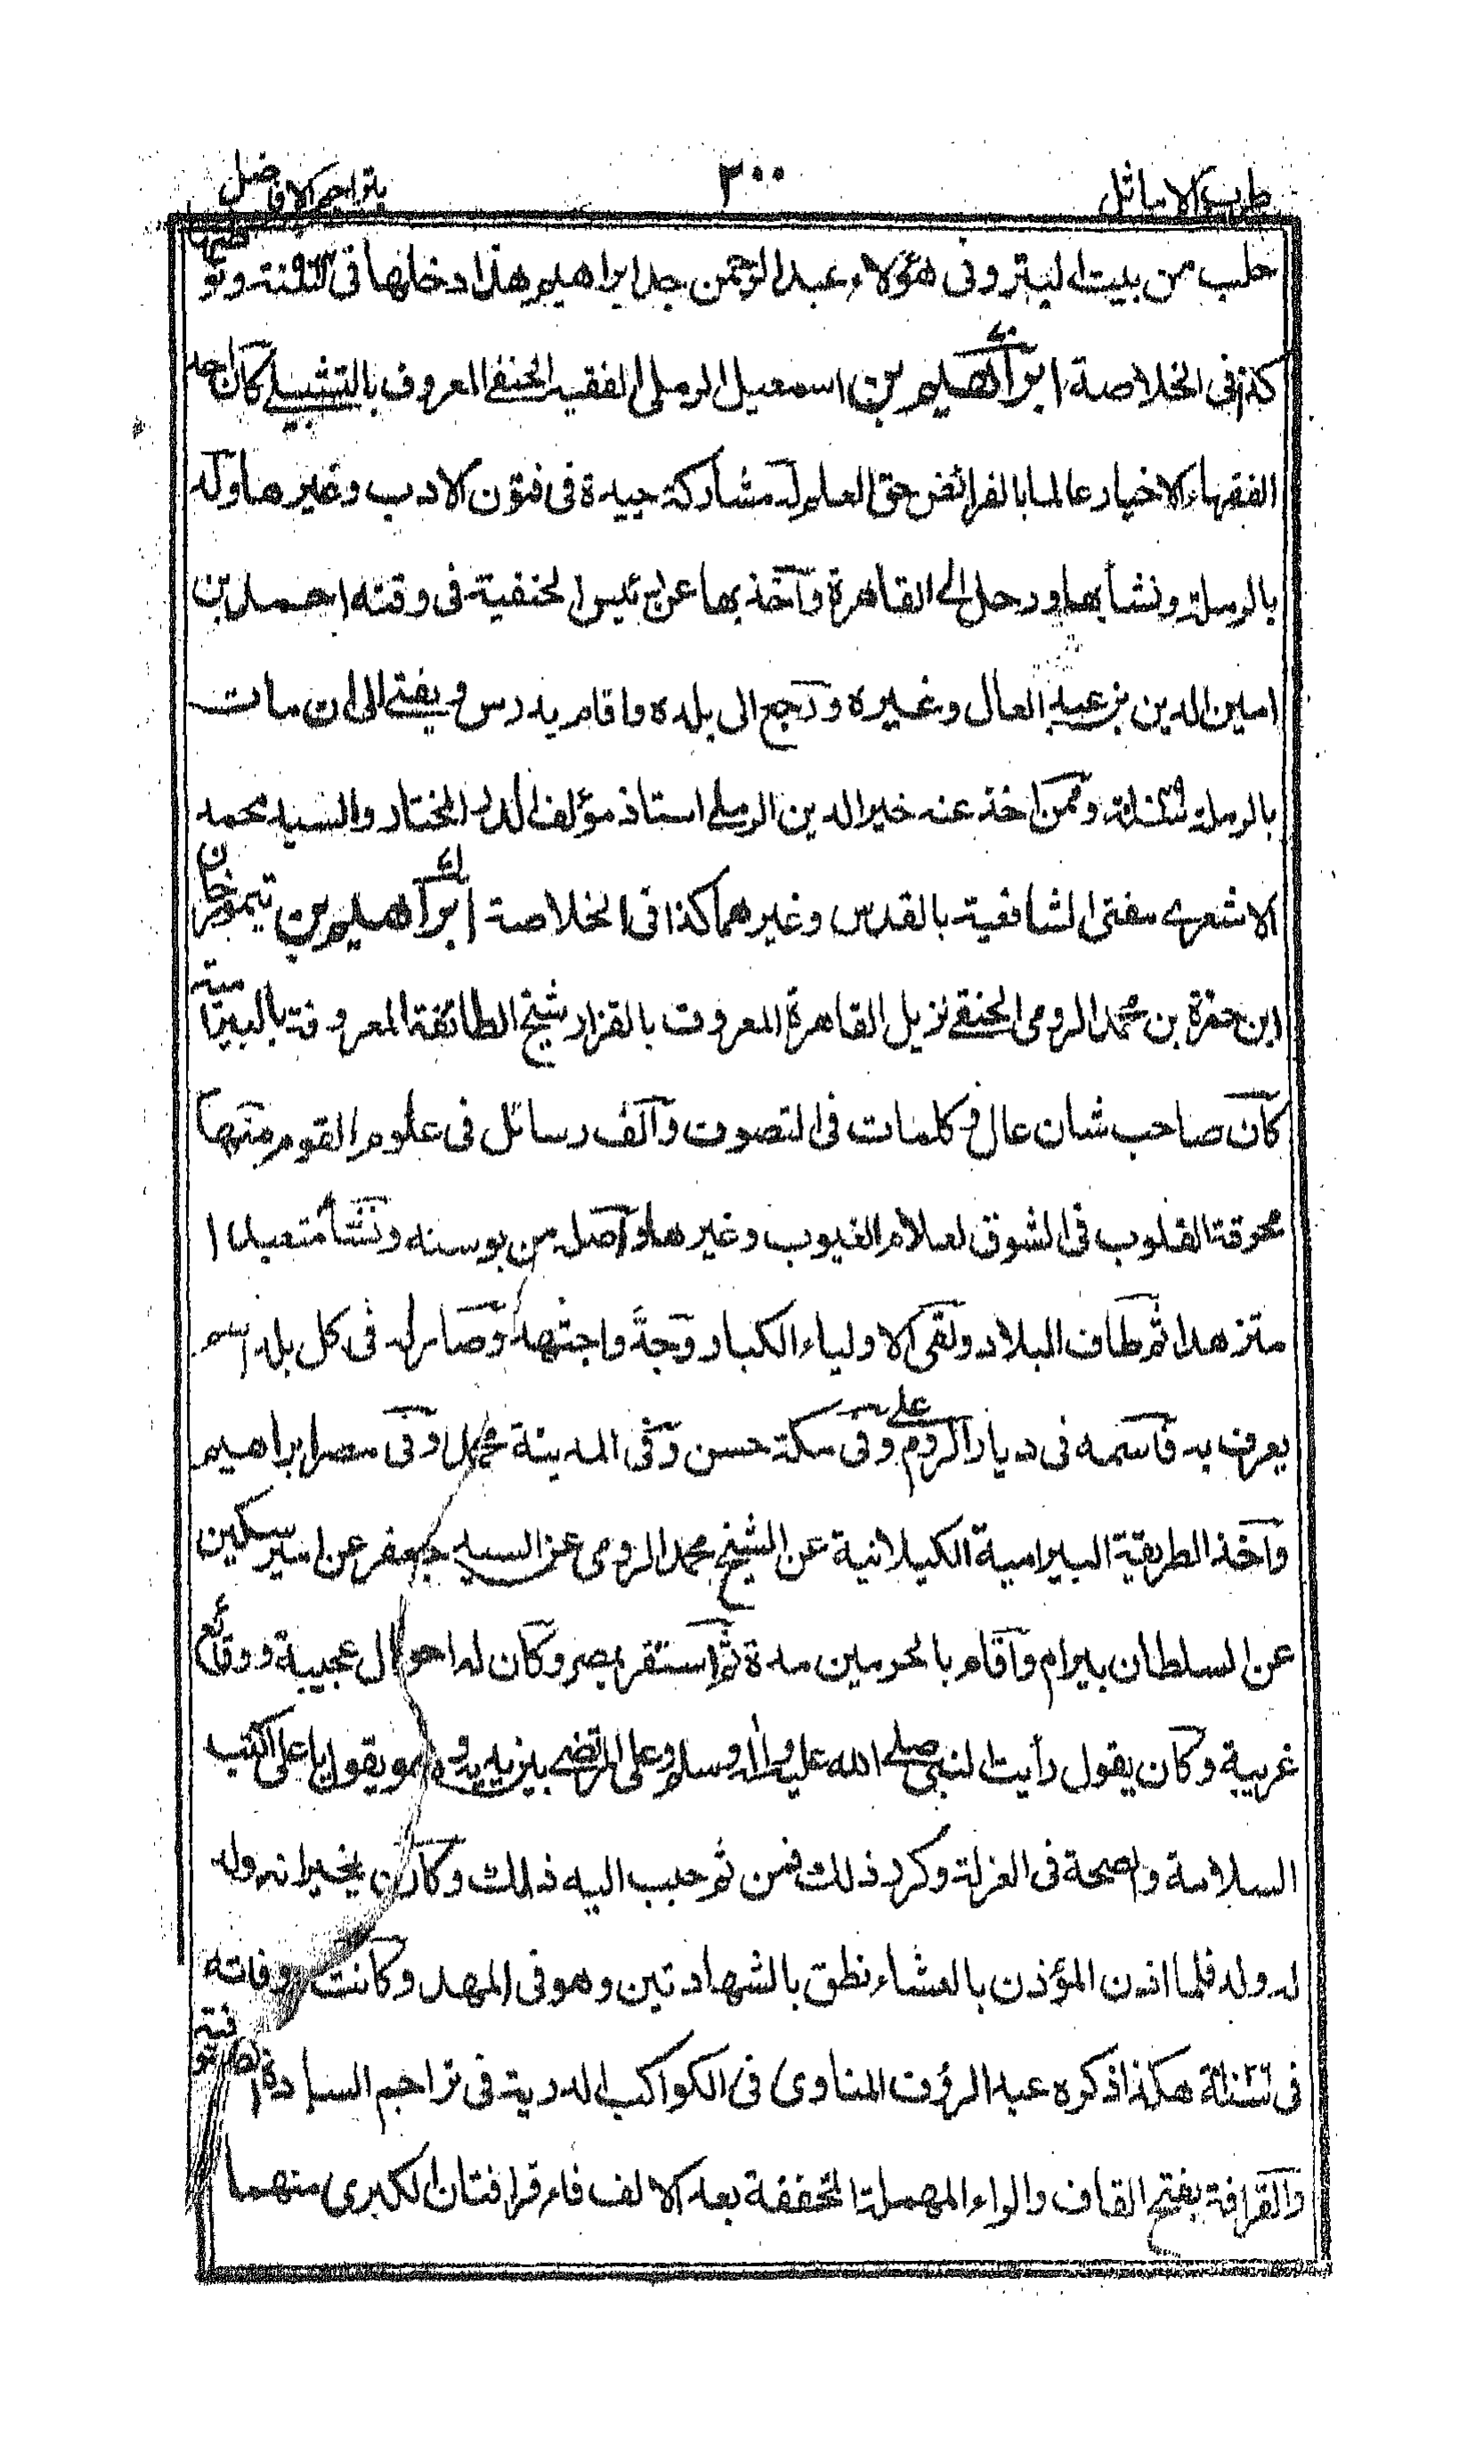 طرب الاماثل ٣٠٠ بتراجم الافاضل
حلب من بيت البترونى هؤلاء عبد الرحمن جد ابراهيم هذا دخلها فى سنة وتو طنها
كذا فى الخلاصة ابراهيم بن اسمعيل الرملى الفقيه الحنفى المعروف بالتشبيلى كان احد
الفقهاء الاخيار عالما بالفرائض حق العلم له مشاركة جيدة فى فنون الادب وغيرها ولد
بالرملة ونشأ بها ورحل الى القاهرة واخذ بها عن رئيس الحنفية فى وقته احمد بن
امين الدين بن عبد العال وغيره ورجع الى بلده واقام يدرس ويفتى الى ان مات
بالرملة وممن اخذ عنه خير الدين الرملى استاذ مؤلف الدر المختار والسيد محمد
الاشعرى مفتى الشافعية بالقدس وغيرهما كذا فى الخلاصة ابراهيم بن تيمور خان
ابن حمزة بن محمد الرومى الحنفى نزيل القاهرة المعروف بالقزاز شيخ الطائفة المعروفة بالبيرامية
كان صاحب شان عال وكلمات فى التصوف والف رسائل فى علوم القوم منها
محرقة القلوب فى الشوق لعلام الغيوب وغيرها واصله من بوسنه ونشأ متعبدا
متزهدا ثم طاف البلاد ولقى الاولياء الكبار وجدَّ واجتهد وصار له فى كل بلد اسم
يعرف به فاسمه فى ديار الروم على وفى مكة حسن وفى المدينة محمد وفى مصر ابراهيم
واخذ الطريقة البيرامية الكيلانية عن الشيخ محمد الرومى عن السيد جعفر عن امير سكين
عن السلطان بيرام واقام بالحرمين مدة ثم استقر بمصر وكان له احوال عجيبة ووقائع
غريبة وكان يقول رأيت النبى صلى الله عليه واله وسلم وعلى المرتضى بين يديه وهو يقول يا على اكتب
السلامة والصحة فى العزلة وكرر ذلك فمن ثم حبب اليه ذلك وكان يخبر انه ولد
له ولد فلما اذن المؤذن بالعشاء نطق بالشهادتين وهو فى المهد وكانت وفاته
فى سنة هكذا ذكره عبد الرؤف المناوى فى الكواكب الدرية فى تراجم السادة الصوفية
والقرافة بفتح القاف والراء المهملة المخففة بعد الالف فاء قرافتان الكبرى منهما